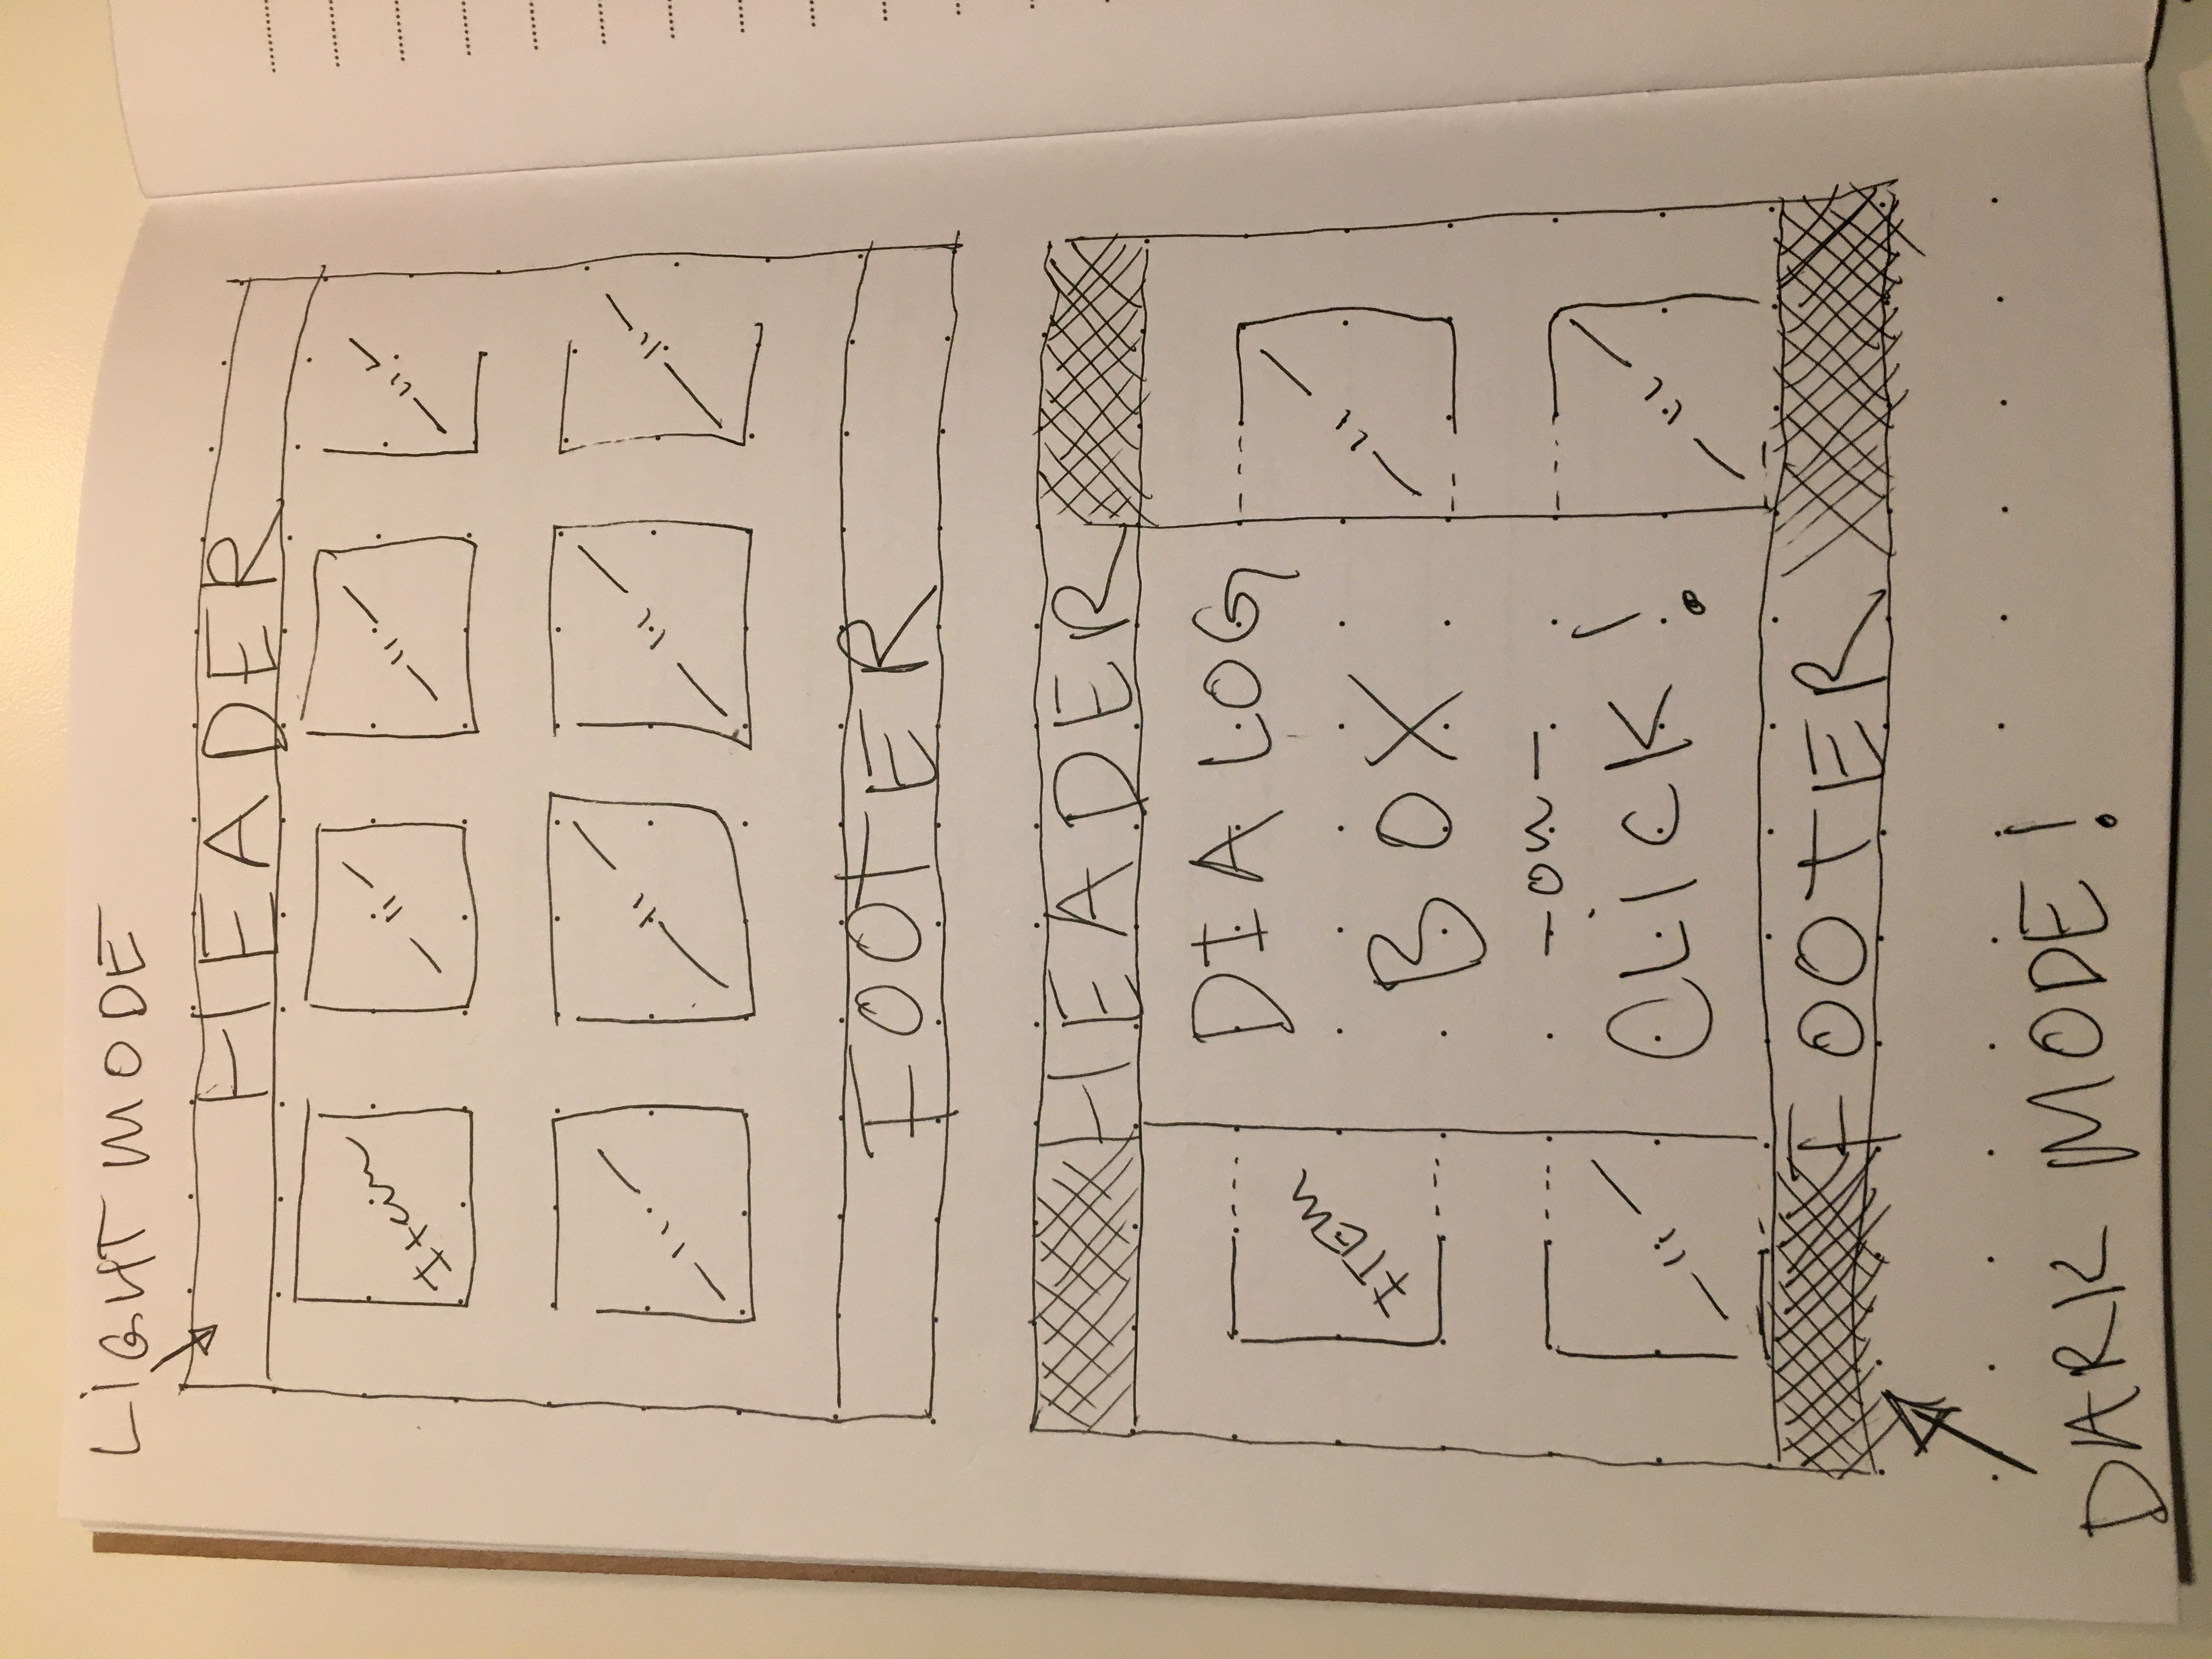 LIGHT MODE
HEADER
Item
FOOTER
HEADER
DIALOG
ITEM
BOX
-on-
CLICK!
FOOTER
DARK MODE!